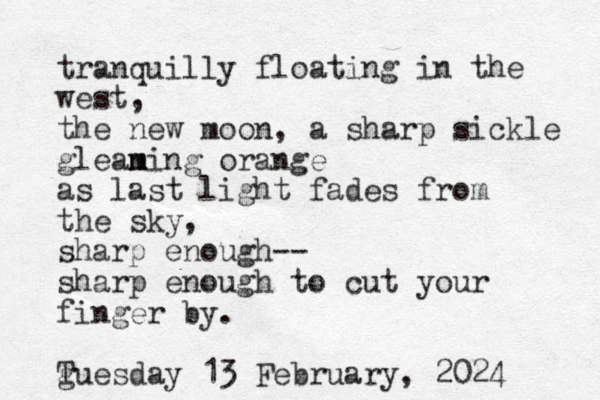 tranquilly floating in the
west,
the new moon, a sharp sickle
gleaming orange
as last light fades from
the sky,
sharp enough--
sharp enough to cut your
finger by.
Tuesday 13 February, 2024